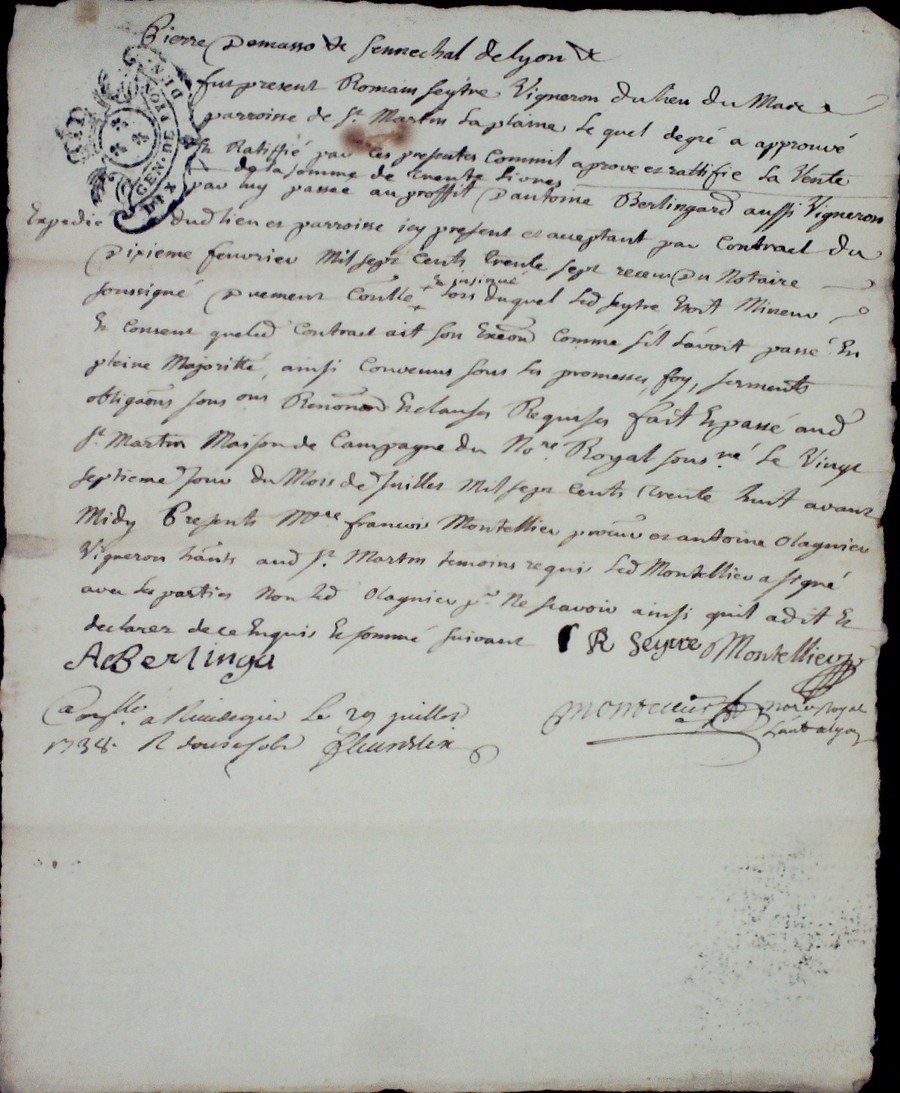 Pierre Demasso & Sennechal de Lyon &
fut present Romain Seytre Vigneron du lieu du Mas
parroisse de St. Martin la plaine lequel degré a approuvé
Et Ratiffié par ces presentes Comm'il aprove et rattifie la Vente
de la somme de trente livres
par luy passée au proffit d'antoine Berlingard aussi Vigneron
Expedié
dud lieu et parroisse icy present et acceptant par Contract du
Dixieme feuvrier Mil sept Cents trente sept receu Du Notaire
soussigné Duement Conllé Et insinué lors duquel led Seytre Etoit Mineur
Et Consent queled Contract ait son Exeon Comme s'il l'avoit passé En
pleine Majoritté, ainsi Convenus sous les promesses, foy, serments
obligaons sous ons Renonaon Et clauses Requises fait Et passé aud
St. Martin Maison de Campagne du Nore. Royal sousné le Vingt
septieme Jour du Mois de Juillet Mil sept Cents trente huit avant
Midy Presents Mre francois Montellier et antoine Olagnier
Vigneron hants aud St. Martin temoins requis led Montellier a signé
avec les parties Non led Olagnier pr. Ne scavoir ainsi quil a dit Et
declarez de ce Enquis Et sommé suivant R Seytre Montellier
A Berlinga
Conllé. a Rivedegier le 29 juillet
1738. R douze sols
Montellier Nore Royal